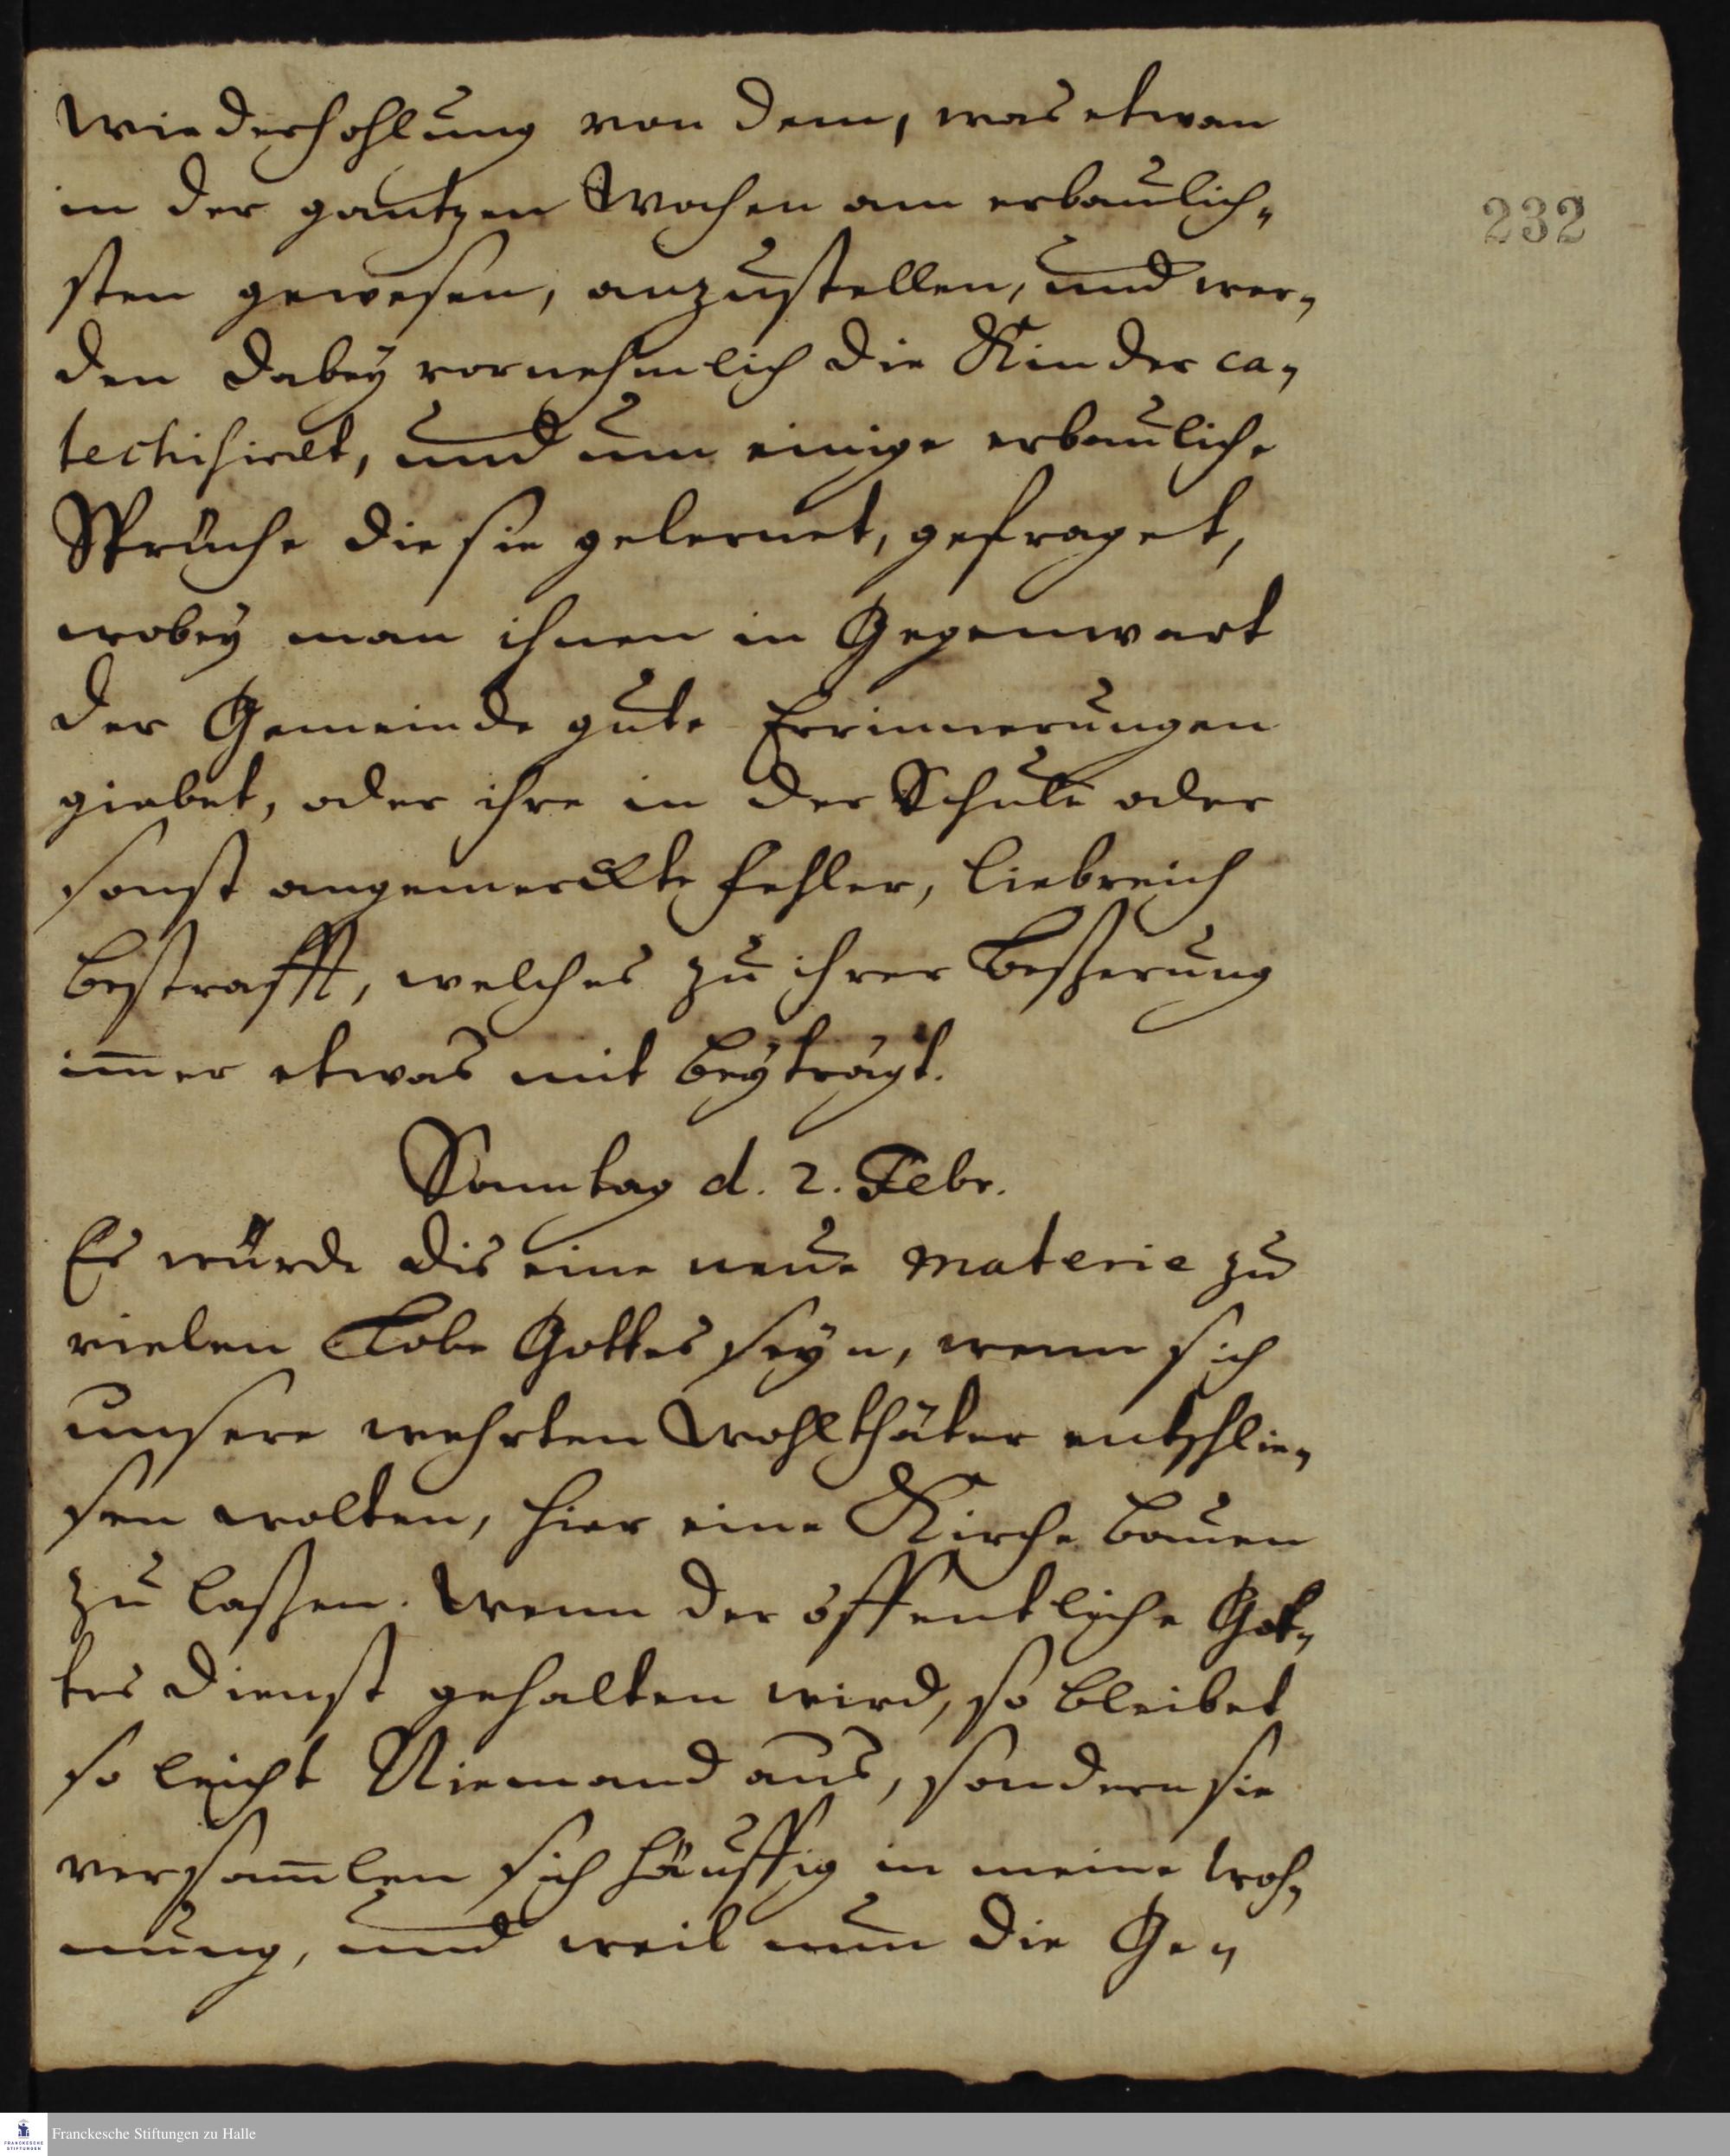 Wiederhohlung von dem, was etwan
in der gantzen Wochen am erbaulich„
sten gewesen, anzustellen, und wer„
232
den dabey vornehmlich die Kinder ca„
techisiret, und um einige erbauliche
Sprüche die sie gelernet, gefraget,
wobey man ihnen in Gegenwart
der Gemeinde gute Erinnerungen
giebet, oder ihre in der Schule oder
sonst angemerckte Fehler, liebreich
bestrafft, welches zu ihrer Beßerung
im̅er etwas mit beyträgt.
Sonntag d. 2. Febr.
Es würde dis eine neue materie zu
vielen Lobe Gottes seyn, wenn sich
unsere wehrten Wohlthäter entschlie„
sen wolten, hier eine Kirche bauen
zu laßen. Wenn der öffentliche Got„
tes dienst gehalten wird, so bleibet
so leicht Niemand aus, sondern sie
versam̅len sich häuffig in meine Woh„
nung, und weil nun die Ge„
Franckesche Stiftungen zu Halle